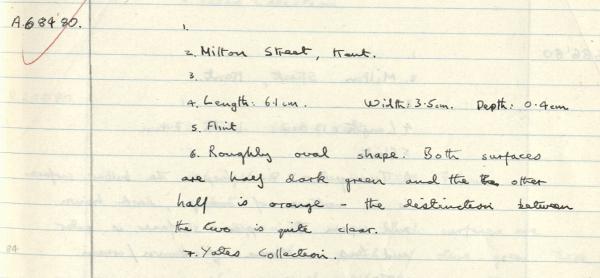 A.684'80.
1.
2. Milton Street, Kent.
3.
4. Length: 6.1cm. Width: 3.5cm. Depth: 0.4cm
5. Flint
6. Roughly oval shape. Both surfaces
are half dark green and the other
half is orange - the distinction between
the two is quite clear.
7. Yates Collection.